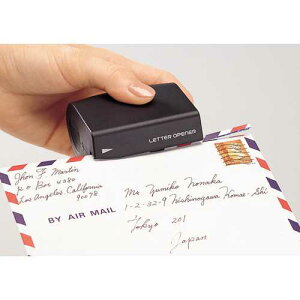 LETTER OPENER
Jhon F Martin
P O Box 4080
Los Angeles California
90078
BY AIR MAIL
Mr. Yumiko Nonaka
1-2-32-9 Nishinogawa Komae-Shi
Tokyo 201
Japan